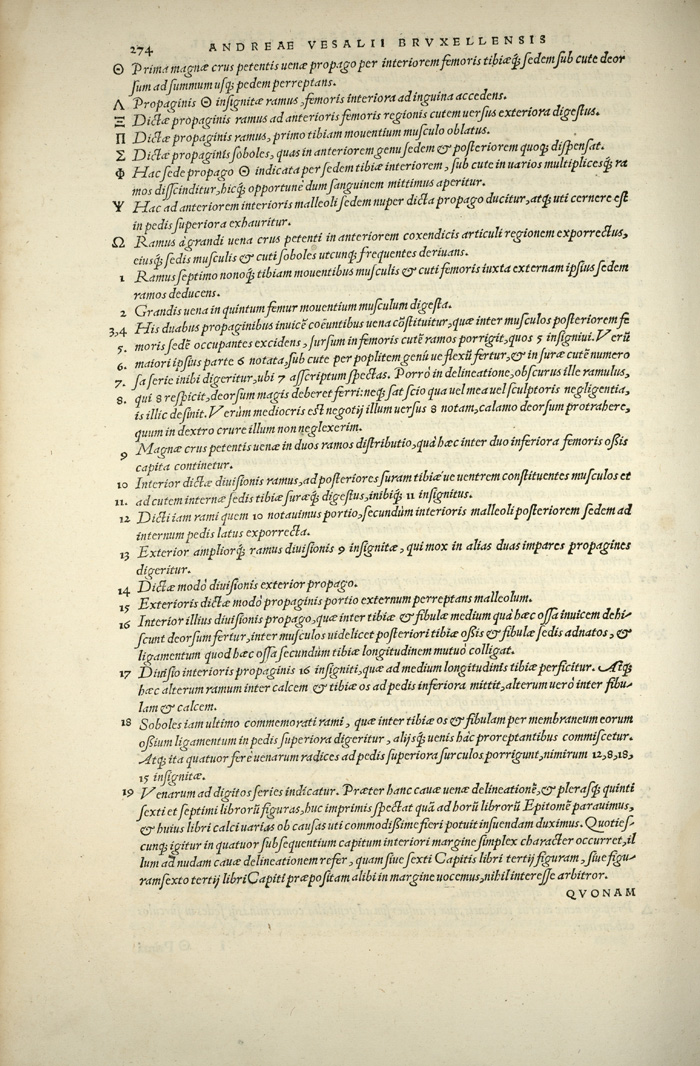 274 ANDREAE VESALII BRVXELLENSIS
Θ Prima magnæ crus petentis uenæ propago per interiorem femoris tibiæq́; sedem sub cute deor
sum ad summum usq; pedem perreptans.
Λ Propaginis Θ insignitæ ramus, femoris interiora ad inguina accedens.
Ξ Dictæ propaginis ramus ad anterioris femoris regionis cutem uersus exteriora digestus.
Π Dictæ propaginis ramus, primo tibiam mouentium musculo oblatus.
Σ Dictæ propaginis soboles, quas in anteriorem genu sedem & posteriorem quoq; dispensat.
Φ Hac sede propago Θ indicata per sedem tibiæ interiorem, sub cute in uarios multiplicesq́; ra
mos discinditur, hicq́; opportunè dum sanguinem mittimus aperitur.
Ψ Hac ad anteriorem interioris malleoli sedem nuper dicta propago ducitur, atq; uti cernere est
in pedis superiora exhauritur.
Ω Ramus à grandi uena crus petenti in anteriorem coxendicis articuli regionem exporrectus,
eiusq́; sedis musculis & cuti soboles utcunq; frequentes deriuans.
1 Ramus septimo nonoq́; tibiam mouentibus musculis & cuti femoris iuxta externam ipsius sedem
ramos deducens.
2 Grandis uena in quintum femur mouentium musculum digesta.
3,4 His duabus propaginibus inuicē coëuntibus uena cōstituitur, quæ inter musculos posteriorem fe
5. moris sedē occupantes excidens, sursum in femoris cutē ramos porrigit, quos 5 insigniui. Verū
6. maiori ipsius parte 6 notata, sub cute per poplitem genú ue flexū fertur, & in suræ cutē numero
7. sa serie inibi digeritur, ubi 7 asscriptum spectas. Porrò in delineatione, obscurus ille ramulus,
8. qui 8 respicit, deorsum magis deberet ferri: neq; sat scio qua uel mea uel sculptoris negligentia,
is illic desinit. Verùm mediocris est negotij illum uersus 8 notam, calamo deorsum protrahere,
quum in dextro crure illum non neglexerim.
9 Magnæ crus petentis uenæ in duos ramos distributio, quà hæc inter duo inferiora femoris ossis
capita continetur.
10 Interior dictæ diuisionis ramus, ad posteriores suram tibiæ ue uentrem constituentes musculos et
11. ad cutem internæ sedis tibiæ suræq́; digestus, inibiq́; 11 insignitus.
12 Dicti iam rami quem 10 notauimus portio, secundùm interioris malleoli posteriorem sedem ad
internum pedis latus exporrecta.
13 Exterior ampliorq́; ramus diuisionis 9 insignitæ, qui mox in alias duas impares propagines
digeritur.
14 Dictæ modò diuisionis exterior propago.
15 Exterioris dictæ modò propaginis portio externum perreptans malleolum.
16 Interior illius diuisionis propago, quæ inter tibiæ & fibulæ medium quà hæc ossa inuicem dehi
scunt deorsum fertur, inter musculos uidelicet posteriori tibiæ ossis & fibulæ sedis adnatos, &
ligamentum quod hæc ossa secundùm tibiæ longitudinem mutuò colligat.
17 Diuisio interioris propaginis 16 insigniti, quæ ad medium longitudinis tibiæ perficitur. Atq;
hæc alterum ramum inter calcem & tibiæ os ad pedis inferiora mittit, alterum uerò inter fibu
lam & calcem.
18 Soboles iam ultimo commemorati rami, quæ inter tibiæ os & fibulam per membraneum eorum
ossium ligamentum in pedis superiora digeritur, alijsq́; uenis hàc proreptantibus commiscetur.
Atq; ita quatuor ferè uenarum radices ad pedis superiora surculos porrigunt, nimirum 12, 8, 18,
15 insignitæ.
19 Venarum ad digitos series indicatur. Præter hanc cauæ uenæ delineationē, & plerasq; quinti
sexti et septimi librorū figuras, huc imprimis spectat quā ad horū librorū Epitomē parauimus,
& huius libri calci uarias ob causas uti commodissime fieri potuit insuendam duximus. Quoties-
cunq; igitur in quatuor subsequentium capitum interiori margine simplex character occurret, il
lum ad nudam cauæ delineationem refer, quam siue sexti Capitis libri tertij figuram, siue figu-
ram sexto tertij libri Capiti præpositam alibi in margine uocemus, nihil interesse arbitror.
QVONAM